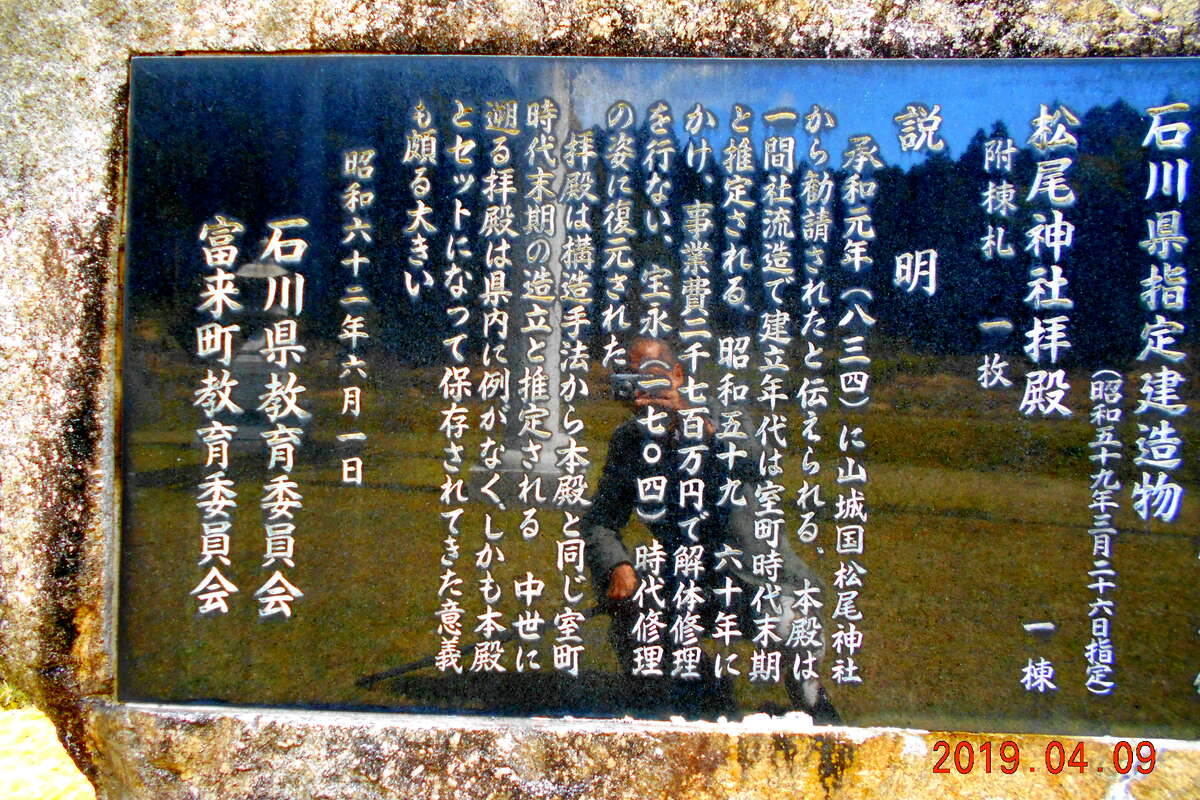 石川県指定建造物
(昭和五十九年三月二十六日指定)
松尾神社拝殿 一棟
附棟札 一枚
説明
承和元年(八三四)に山城国松尾神社
から勧請されたと伝えられる、本殿は
一間社流造で建立年代は室町時代末期
と推定される、昭和五十九 六十年に
かけ、事業費二千七百万円で解体修理
を行ない、宝永(一七〇四)時代修理
の姿に復元された
拝殿は構造手法から本殿と同じ室町
時代末期の造立と推定される 中世に
遡る拝殿は県内に例がなく、しかも本殿
とセットになって保存されてきた意義
も頗る大きい
昭和六十二年六月一日
石川県教育委員会
富来町教育委員会
2019.04.09